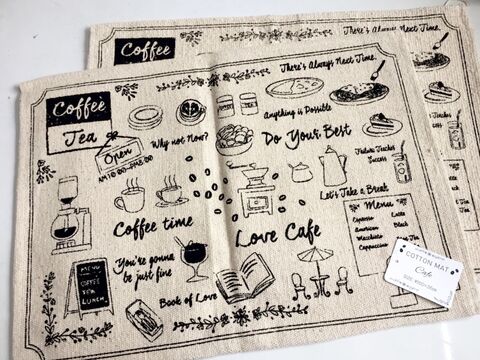 Coffee
There's Always Next Time.
Coffee
Tea
There's Always Next Time.
Anything is Possible
Why not Now?
Do Your Best
Open
AM10:00-PM8:00
Failure Teaches
Success
Let's Take a Break
Menu
Espresso
Latte
American
Black
Macchiato
Mint Tea
Cappuccino
Coffee time
Love Cafe
You're gonna
be just fine
Book of Love
MENU
COFFEE
TEA
LUNCH
COTTON MAT
Cafe